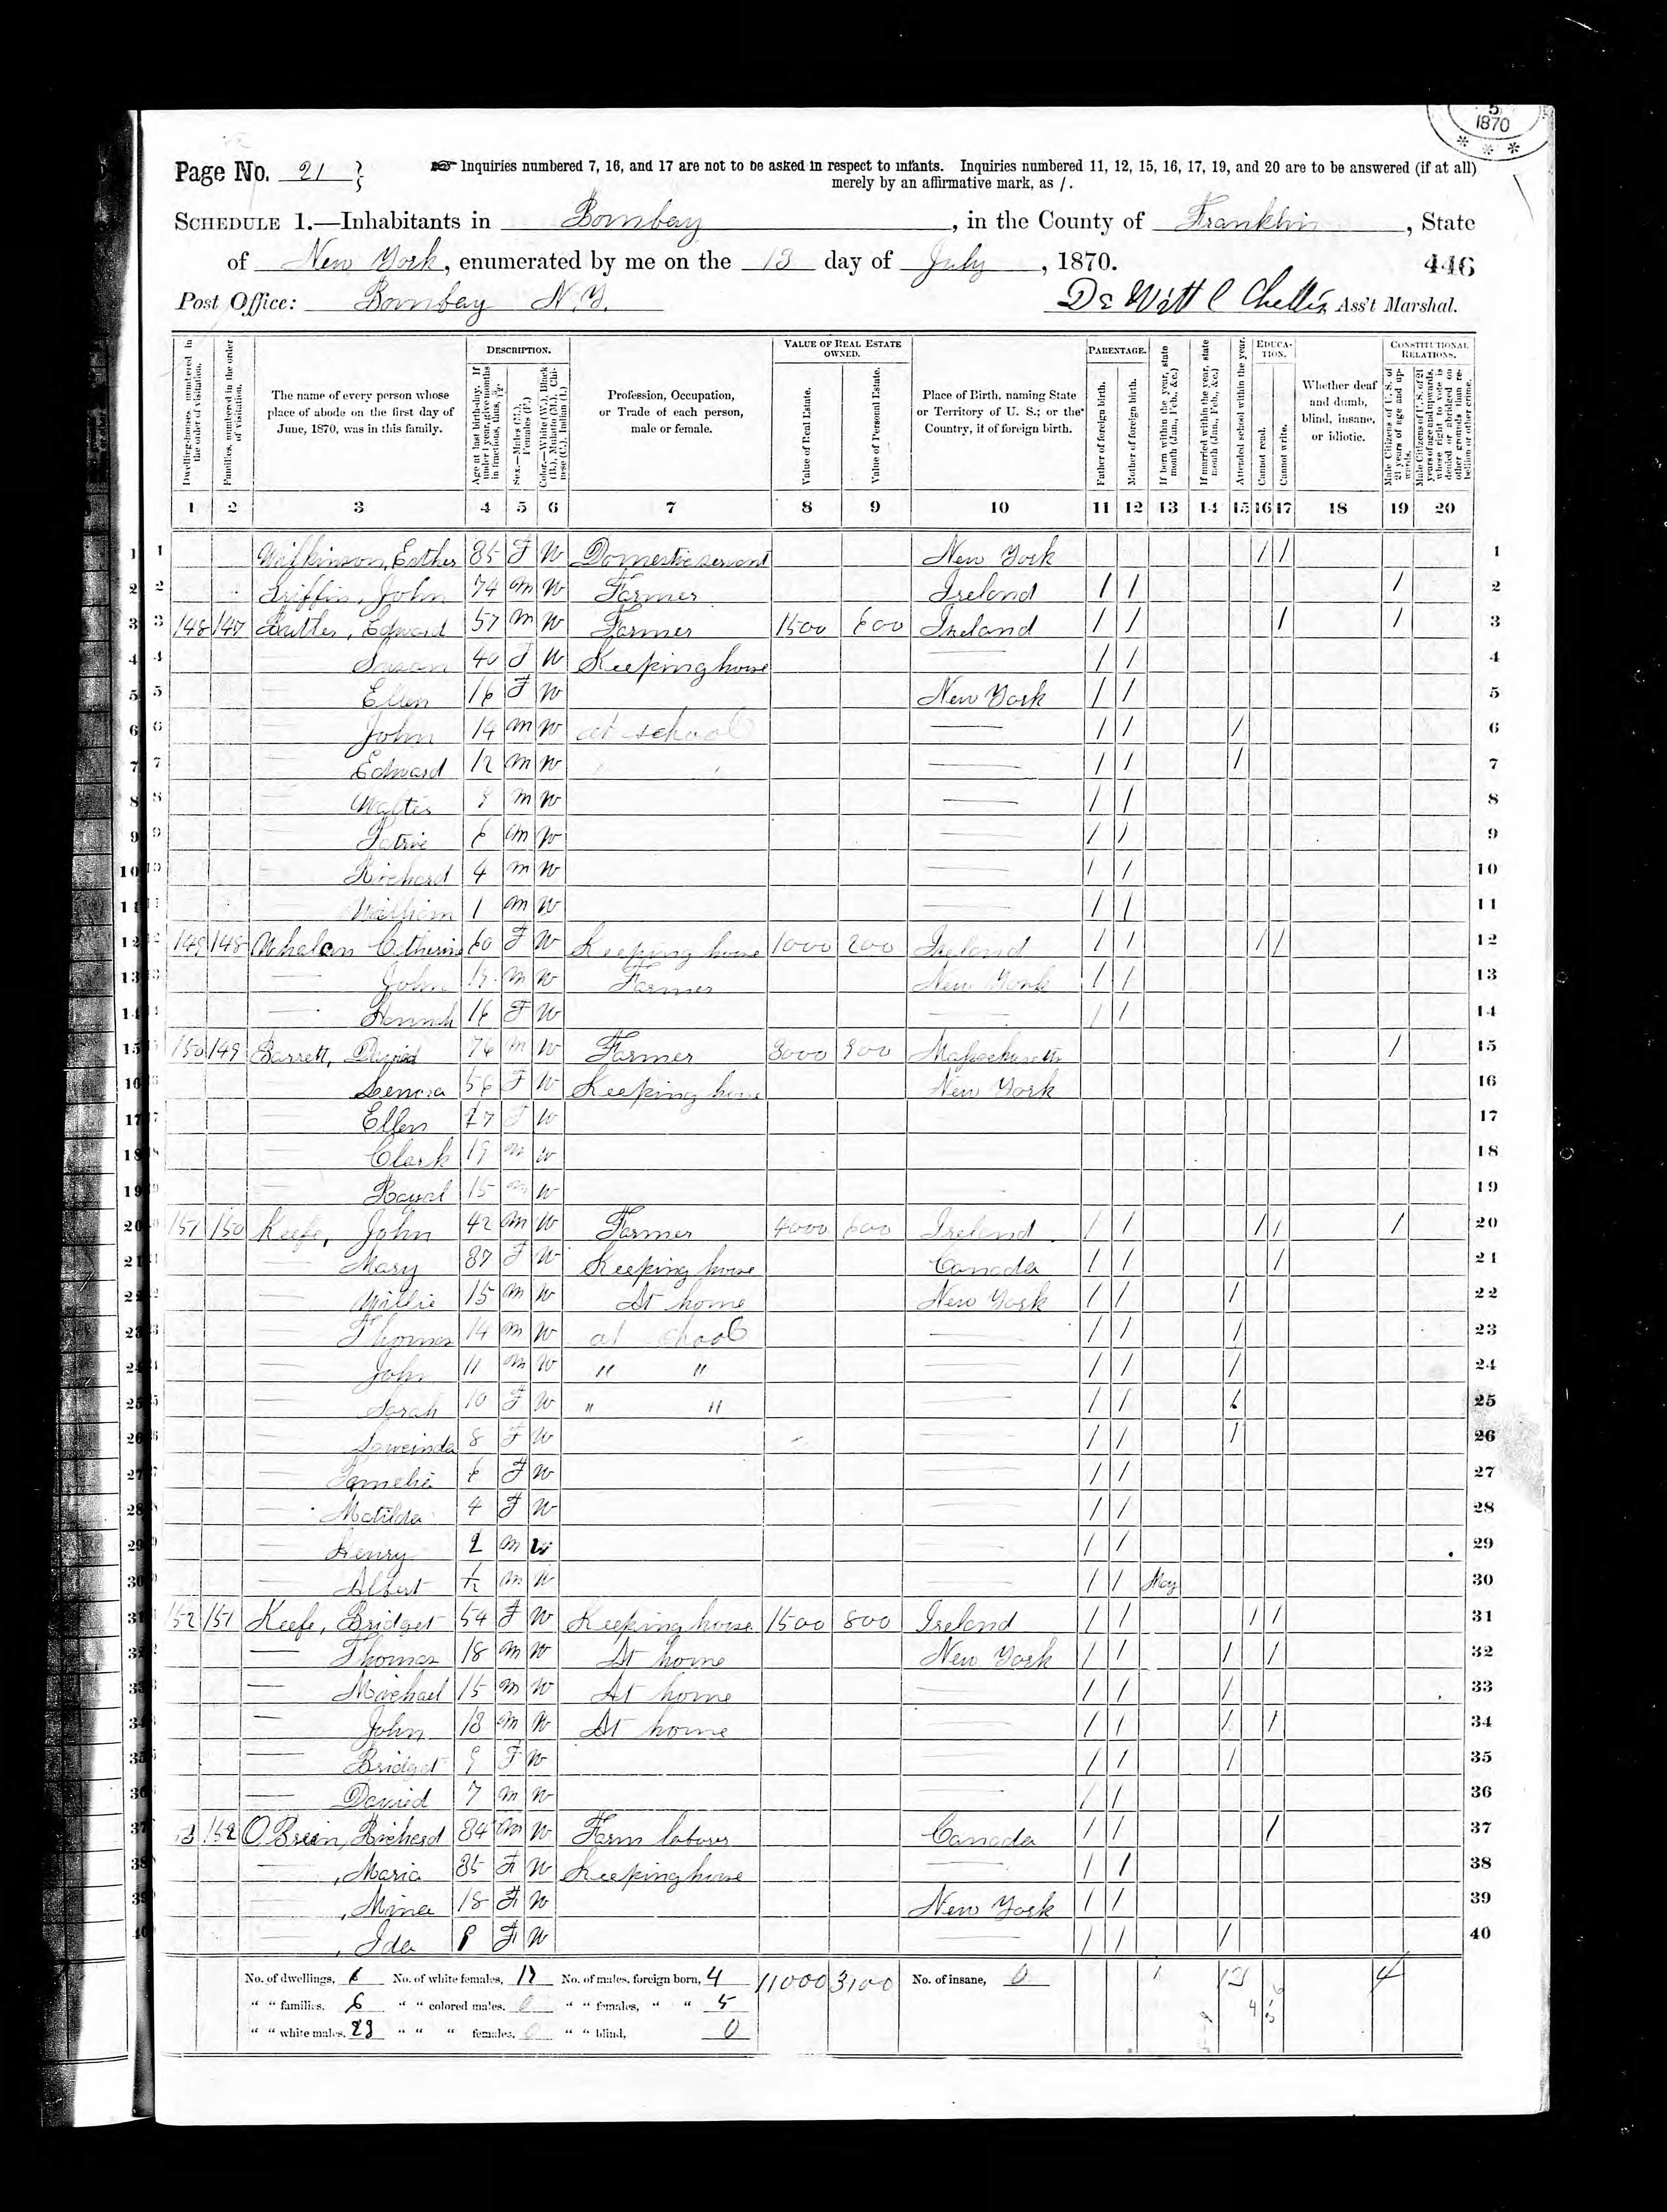 5
1870
* * *
Page No. 21
☞ Inquiries numbered 7, 16, and 17 are not to be asked in respect to infants. Inquiries numbered 11, 12, 15, 16, 17, 19, and 20 are to be answered (if at all)
merely by an affirmative mark, as /.
SCHEDULE 1.—Inhabitants in Bombay, in the County of Franklin, State
of New York, enumerated by me on the 13 day of July, 1870. 446
Post Office: Bombay N.Y. De Witt C Chellis, Ass't Marshal.
Dwelling-houses, numbered in the order of visitation.
Families, numbered in the order of visitation.
The name of every person whose place of abode on the first day of June, 1870, was in this family.
DESCRIPTION.
Age at last birth-day. If under 1 year, give months in fractions, thus, 3/12.
Sex.—Males (M.), Females (F.)
Color.—White (W.), Black (B.), Mulatto (M.), Chinese (C.), Indian (I.)
Profession, Occupation, or Trade of each person, male or female.
VALUE OF REAL ESTATE OWNED.
Value of Real Estate.
Value of Personal Estate.
Place of Birth, naming State or Territory of U. S.; or the Country, if of foreign birth.
PARENTAGE.
Father of foreign birth.
Mother of foreign birth.
If born within the year, state month (Jan., Feb., &c.)
If married within the year, state month (Jan., Feb., &c.)
Attended school within the year.
EDUCATION.
Cannot read.
Cannot write.
Whether deaf and dumb, blind, insane, or idiotic.
CONSTITUTIONAL RELATIONS.
Male Citizens of U. S. of 21 years of age and upwards.
Male Citizens of U. S. of 21 years of age and upwards, whose right to vote is denied or abridged on other grounds than rebellion or other crime.
1 2 3 4 5 6 7 8 9 10 11 12 13 14 15 16 17 18 19 20
1 Wilkinson, Esther 85 F W Domestic servant New York / / 1
2 Griffin, John 74 M W Farmer Ireland / / / 2
3 148 147 Butler, Edward 57 M W Farmer 1500 600 Ireland / / / / 3
4 — Susan 40 F W Keeping house — / / 4
5 — Ellen 16 F W New York / / 5
6 — John 14 M W at school — / / / 6
7 — Edward 12 M W — / / / 7
8 — Walter M W — / / 8
9 — 6 M W — / / 9
10 — Richard 4 M W — / / 10
11 — William 1 M W — / / 11
12 149 148 Whalen Catherine 60 F W Keeping house 1000 200 Ireland / / / / 12
13 — John M W Farmer New York / / 13
14 — Hannah 16 F W — / / 14
15 150 149 Barrett, 76 M W Farmer 3000 Massachusetts / 15
16 — 56 F W Keeping house New York 16
17 — Ellen F W — 17
18 — Clark 19 M W — 18
19 — Royal 15 M W — 19
20 151 150 Keefe, John 42 M W Farmer 4000 600 Ireland / / / / / 20
21 — Mary 37 F W Keeping house Canada / / / 21
22 — Willie 15 M W At home New York / / / 22
23 — Thomas 14 M W at school — / / / 23
24 — John 11 M W " " — / / / 24
25 — Sarah 10 F W " " — / / / 25
26 — 8 F W — / / / 26
27 — 6 F W — / / 27
28 — Matilda 4 F W — / / 28
29 — Henry 2 M W — / / 29
30 — Albert M W — / / May 30
31 152 151 Keefe, Bridget 54 F W Keeping house 1500 800 Ireland / / / / 31
32 — Thomas 18 M W At home New York / / / / 32
33 — Michael 15 M W At home — / / / 33
34 — John 13 M W At home — / / / / 34
35 — Bridget 9 F W — / / / 35
36 — David 7 M W — / / 36
37 152 O Brien, Richard 34 M W Farm laborer Canada / / / 37
38 —, Maria 35 F W Keeping house — / / 38
39 —, Mina 13 F W New York / / 39
40 —, Ida F W — / / / 40
No. of dwellings, 6 No. of white females, 17 No. of males, foreign born, 4 11000 3100 No. of insane, 0 1 13 4
" " families, 6 " " colored males, 0 " " females, " " 5
" " white males, 23 " " " females, 0 " " blind, 0